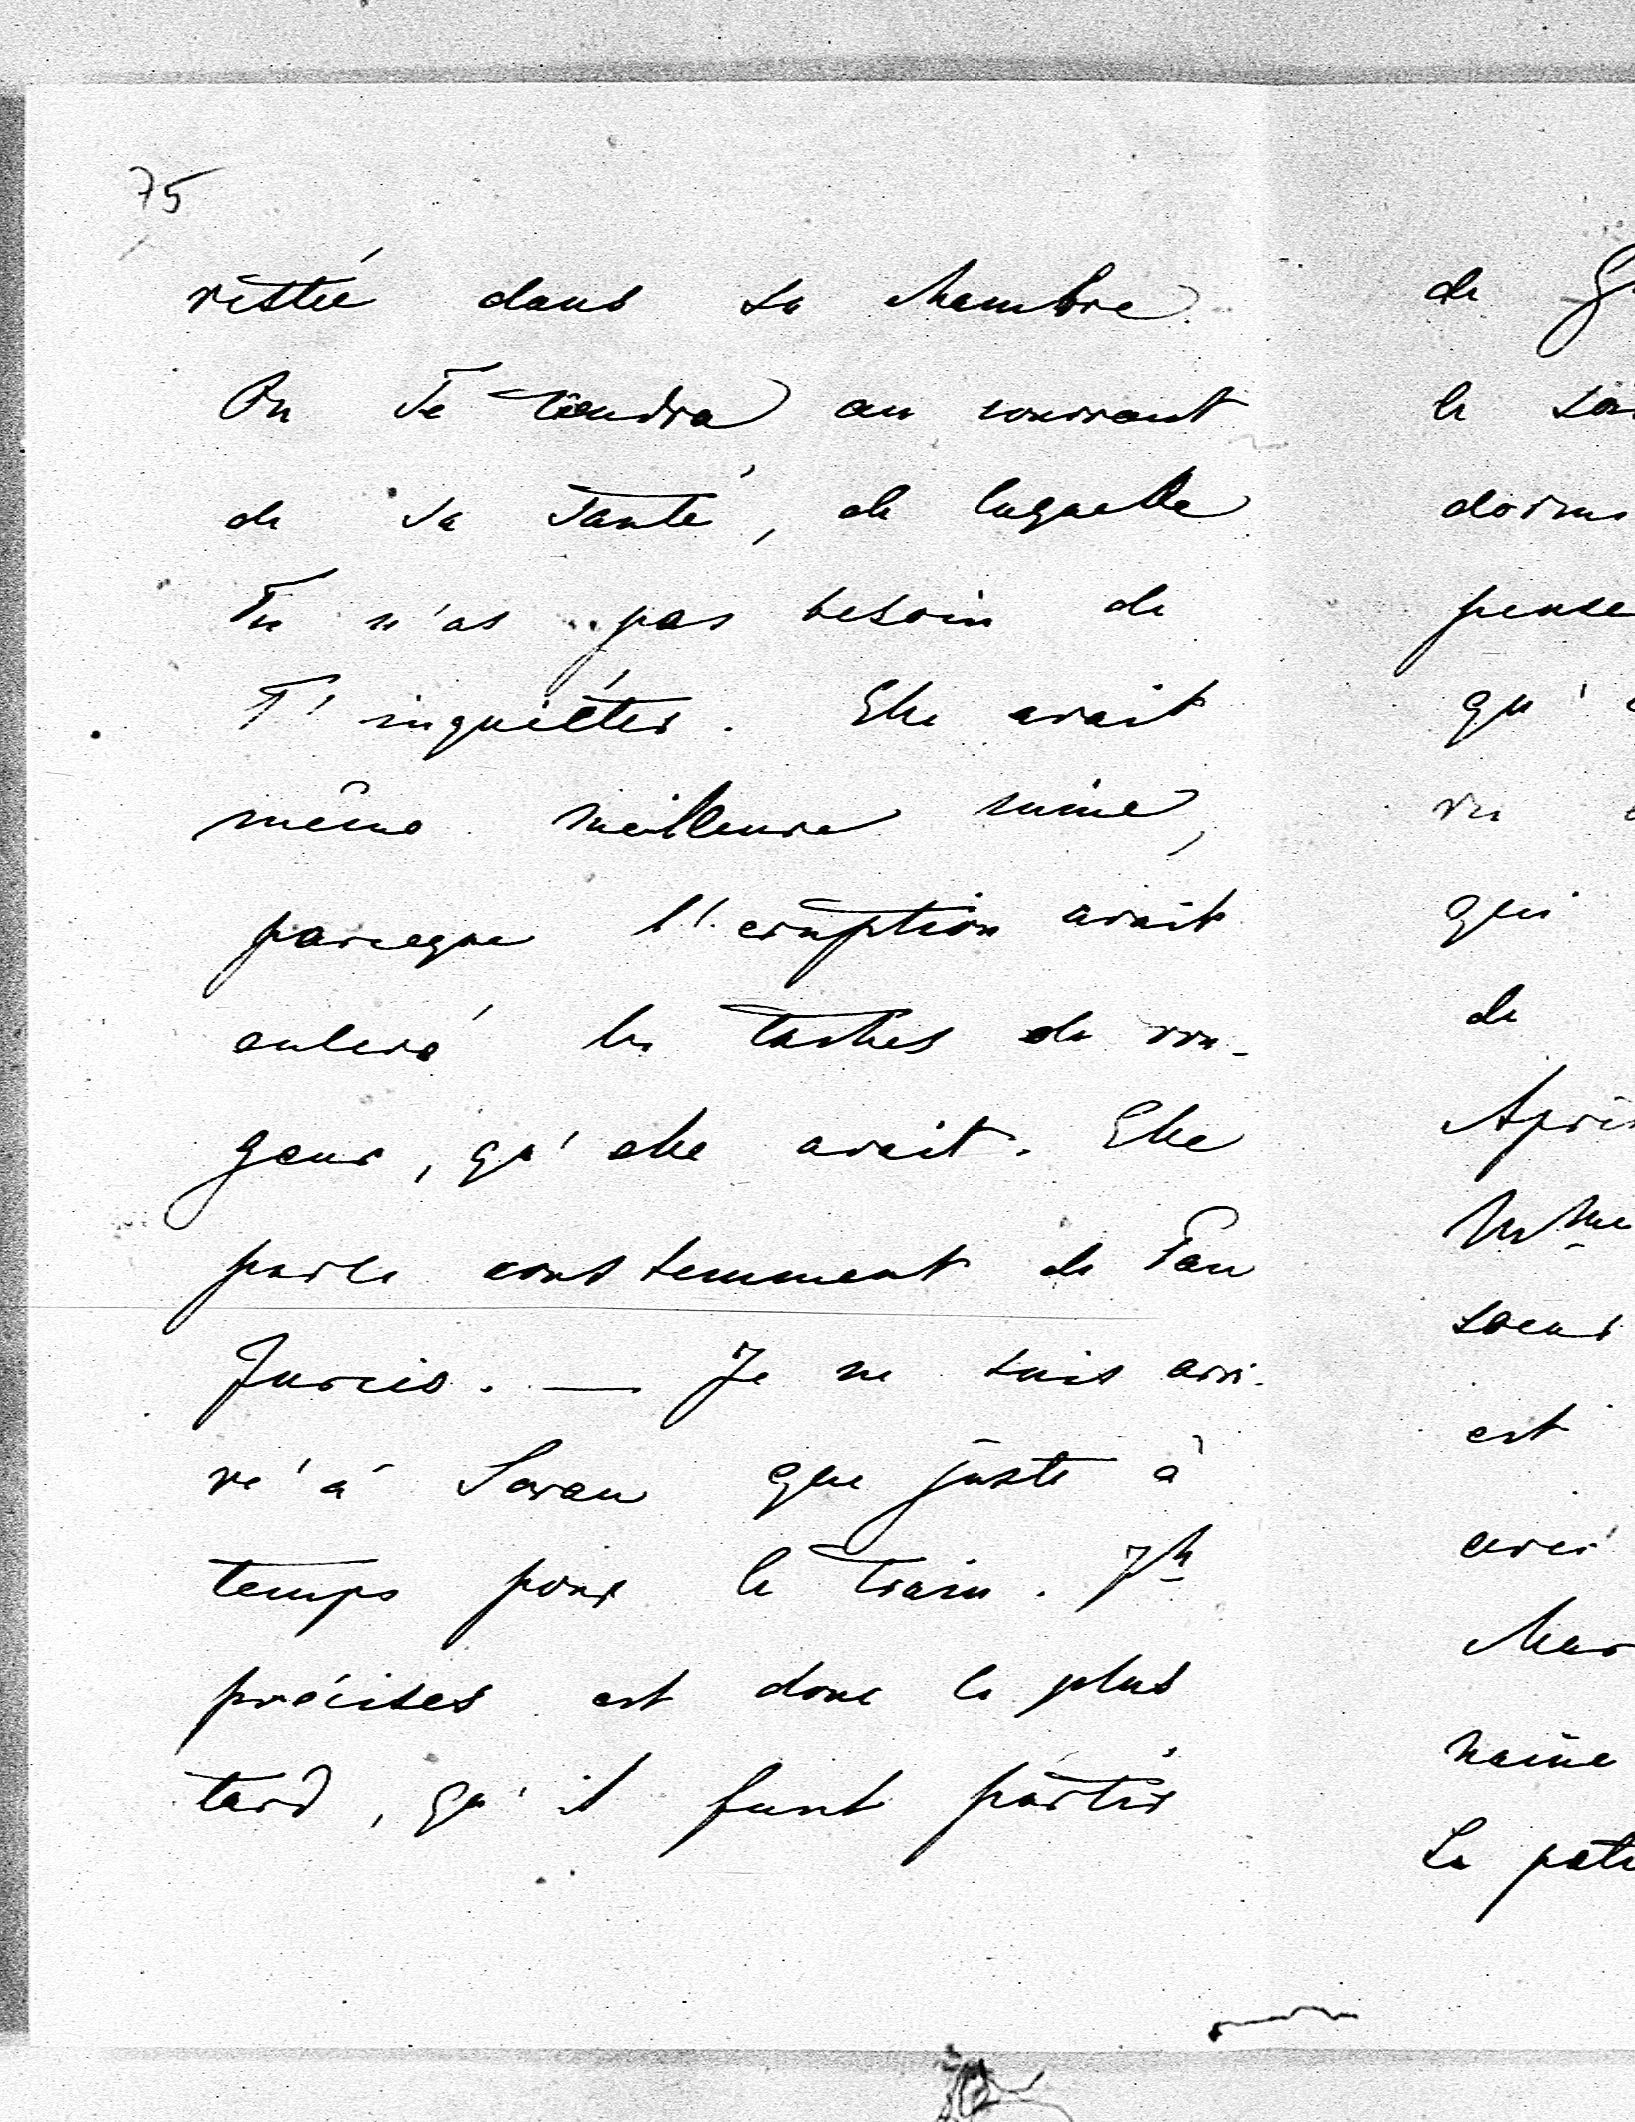 75
restée dans sa chambre.
On Te tiendra au courrant
de sa santé, de laquelle
Tu n'as pas besoin de
T'inquiéter. Elle avait
même meilleure mine,
parceque l'eruption avait
enlevé les taches de rou-
geur, qu'elle avait. Elle
parle constemment de Pan
Jurcio. — Je ne suis arri-
vé à Soran que juste à
temps pour le train. 7h
précises est donc le plus
tard, qu'il faut partir
de
le
qu'
qui
de
Mme
soeur
est
avec
La